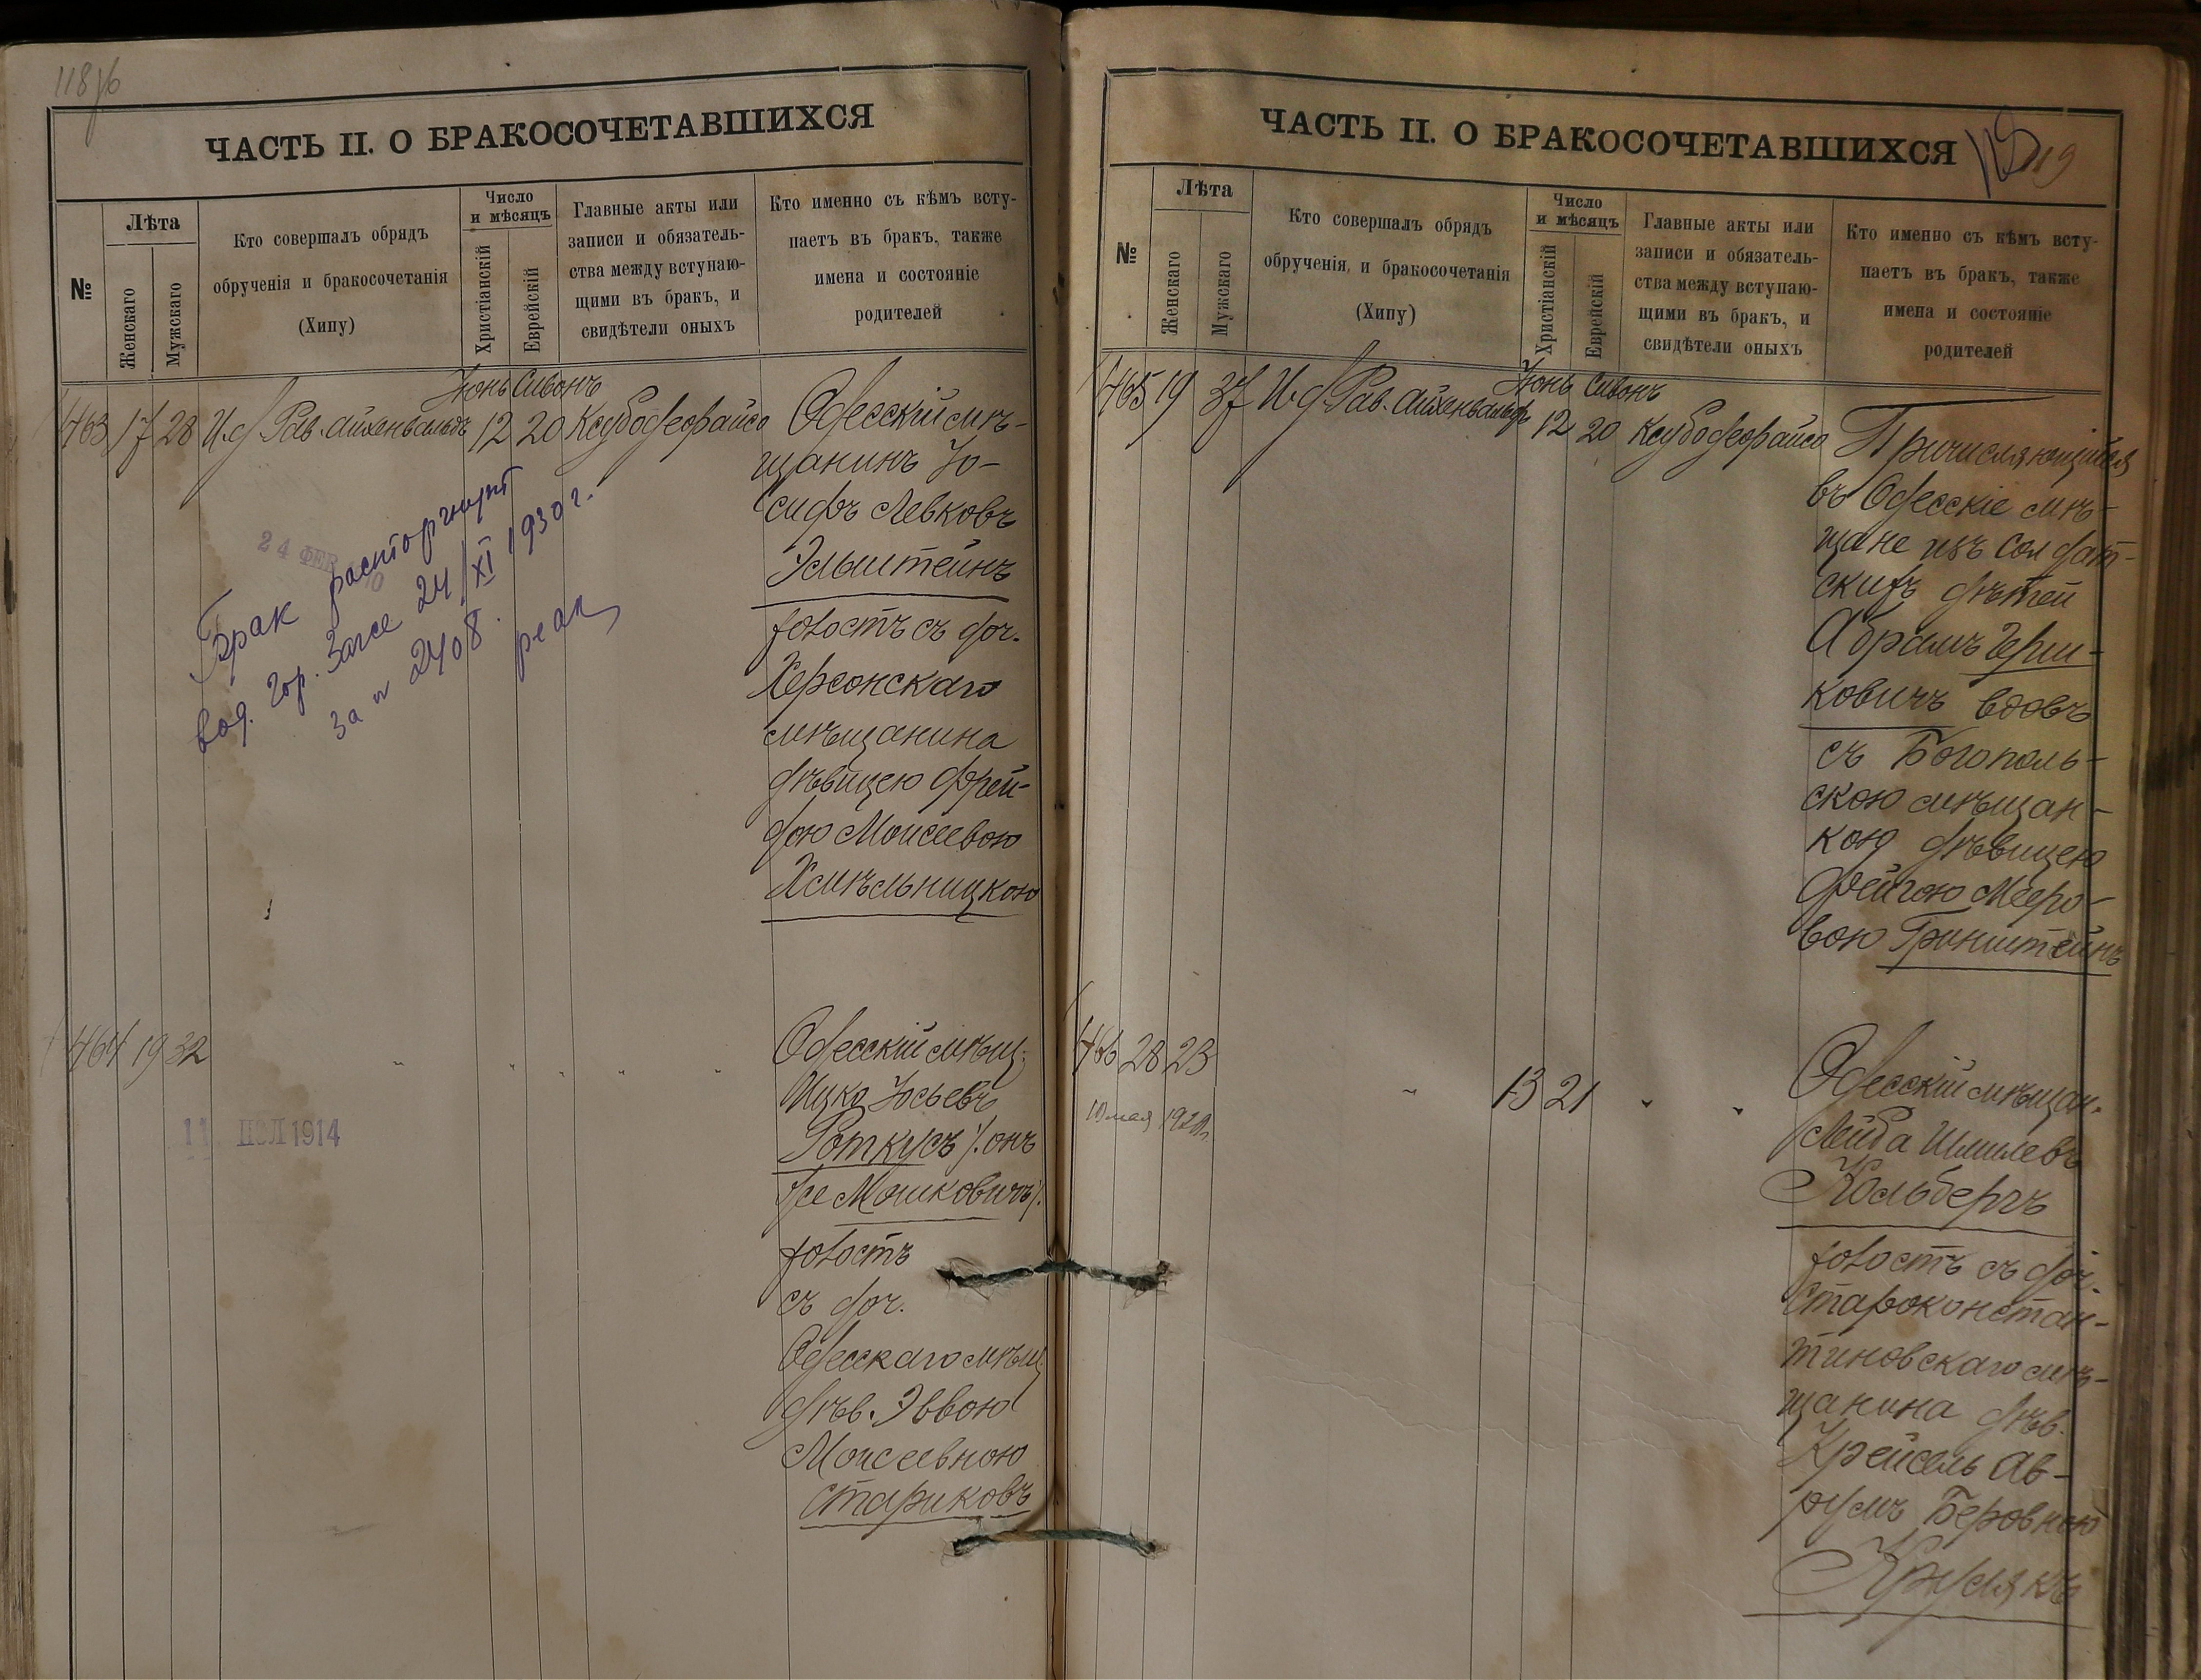 118 об
ЧАСТЬ II. О БРАКОСОЧЕТАВШИХСЯ
№
Лѣта
Женскаго
Мужскаго
Кто совершалъ обрядъ
обрученія и бракосочетанія
(Хипу)
Число
и мѣсяцъ
Христіанскій
Еврейскій
Главные акты или
записи и обязатель-
ства между вступаю-
щими въ бракъ, и
свидѣтели оныхъ
Кто именно съ кѣмъ всту-
паетъ въ бракъ, также
имена и состояніе
родителей
Іюнь Сивонъ
463 17 28 И.д. Рав. Айхенвальдъ 12 20 Ксубодеорайсо
Одесскій мѣ-
щанинъ Іо-
сифъ Левковъ
Эльштейнъ
холостъ съ доч.
Херсонскаго
мѣщанина
дѣвицею Фрей-
дою Моисеевою
Хмѣльницкою
24 ФЕВ
Брак расторгнут
вод. гор. Загсе 24/XI 1930 г.
за № 2408.
464 19 32 " " " " "
Одесскій мѣщ.
Ицко Іосьевъ
Роткусъ /. онъ
же Мошковичъ/.
холостъ
съ доч.
Одесскаго мѣщ.
дѣв. Эввою
Моисеевною
Стариковъ
11 ІЮЛ 1914
ЧАСТЬ II. О БРАКОСОЧЕТАВШИХСЯ
119
№
Лѣта
Женскаго
Мужскаго
Кто совершалъ обрядъ
обрученія, и бракосочетанія
(Хипу)
Число
и мѣсяцъ
Христіанскій
Еврейскій
Главные акты или
записи и обязатель-
ства между вступаю-
щими въ бракъ, и
свидѣтели оныхъ
Кто именно съ кѣмъ всту-
паетъ въ бракъ, также
имена и состояніе
родителей
Іюнь Сивонъ
465 19 37 И.д. Рав. Айхенвальдъ 12 20 Ксубодеорайсо
Причисляющійся
въ Одесскіе мѣ-
щане изъ солдат-
скихъ дѣтей
Абрамъ Герш-
ковичъ вдовъ
съ Богополь-
скою мѣщан-
кою дѣвицею
Фейгою Мееро-
вою Гринштейнъ
466 28 23 " 13 21 " "
10 мая 1920 г.
Одесскій мѣщан.
Лейба Шмилевъ
Кольбергъ
холостъ съ доч.
Староконстан-
тиновскаго мѣ-
щанина дѣв.
Крейсель Ав-
румъ Беровною
Кружлякъ